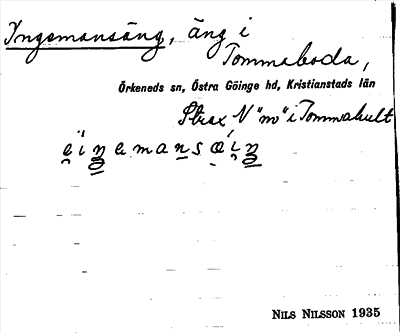 Ingemansäng, äng i
Tommaboda,
Örkeneds sn, Östra Göinge hd, Kristianstads län
Strax N "m" i Tommahult
NILS NILSSON 1935